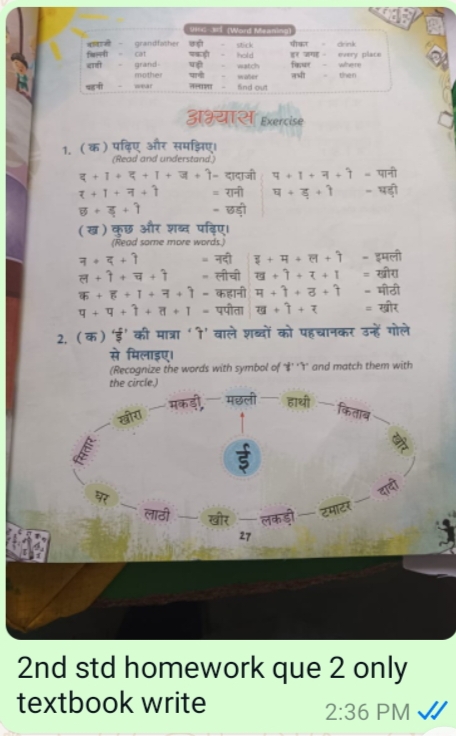 शब्द-अर्थ (Word Meaning)
दादाजी - grandfather छड़ी - stick पीकर - drink
बिल्ली - cat पकड़ी - hold हर जगह - every place
दादी - grand- घड़ी - watch किधर - where
mother पानी - water तभी - then
पहनी - wear तलाश - find out
अभ्यास Exercise
1. (क) पढ़िए और समझिए।
(Read and understand.)
द + ा + द + ा + ज + ी - दादाजी प + ा + न + ी = पानी
र + ा + न + ी = रानी घ + ड़ + ी - घड़ी
छ + ड़ + ी = छड़ी
(ख) कुछ और शब्द पढ़िए।
(Read some more words.)
न + द + ी = नदी इ + म + ल + ी - इमली
ल + ी + च + ी = लीची ख + ी + र + ा = खीरा
क + ह + ा + न + ी - कहानी म + ी + ठ + ी - मीठी
प + प + ी + त + ा - पपीता ख + ी + र = खीर
2. (क) 'ई' की मात्रा 'ी' वाले शब्दों को पहचानकर उन्हें गोले
से मिलाइए।
(Recognize the words with symbol of 'ई' 'ी' and match them with
the circle.)
मकड़ी मछली हाथी
खीरा किताब
सितार खीर
ई
घर दादी
लाठी खीर लकड़ी टमाटर
27
2nd std homework que 2 only
textbook write
2:36 PM